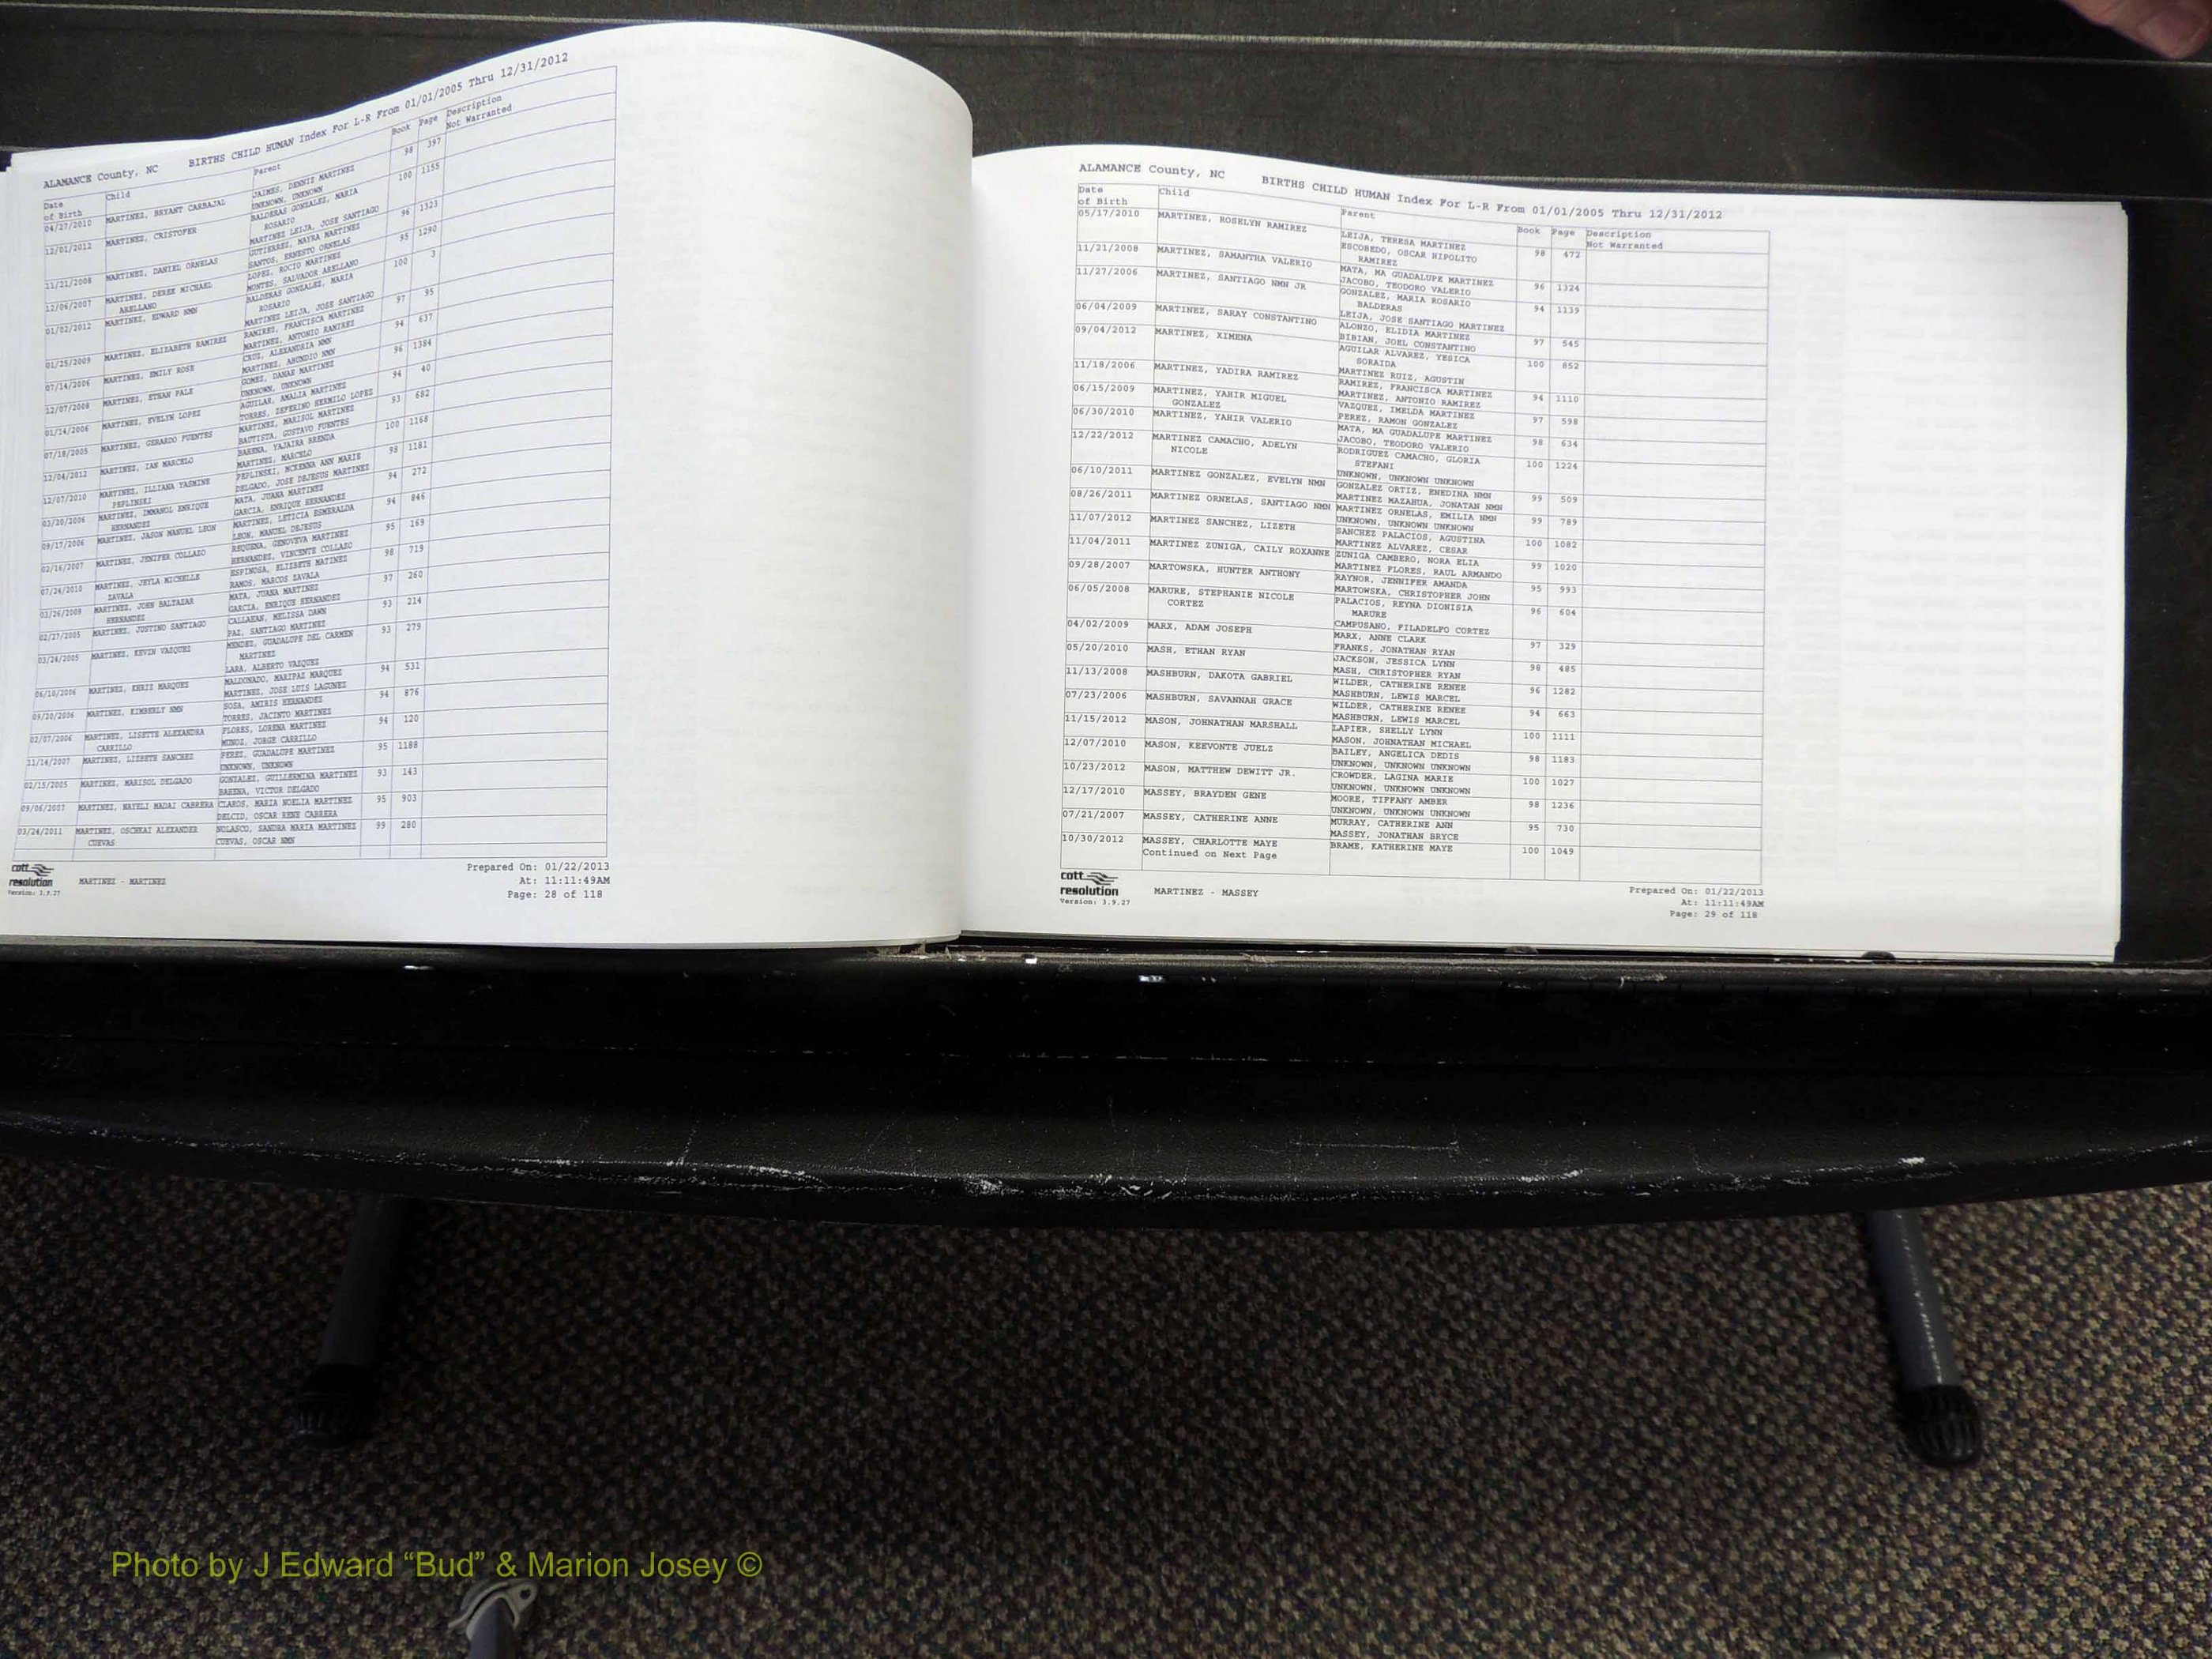 ALAMANCE County, NC BIRTHS CHILD HUMAN Index For L-R From 01/01/2005 Thru 12/31/2012
Date of Birth Child Parent Book Page Description Not Warranted
04/27/2010 MARTINEZ, BRYANT CARBAJAL JAIMES, DENNIZ MARTINEZ 98 397
UNKNOWN, UNKNOWN
12/01/2012 MARTINEZ, CRISTOFER BALDERAS GONZALEZ, MARIA 100 1155
ROSARIO
MARTINEZ LEIJA, JOSE SANTIAGO
11/21/2008 MARTINEZ, DANIEL ORNELAS GUTIERREZ, MAYRA MARTINEZ 96 1323
SANTOS, ERNESTO ORNELAS
12/06/2007 MARTINEZ, DEREK MICHAEL LOPEZ, ROCIO MARTINEZ 95 1290
ARELLANO MONTES, SALVADOR ARELLANO
01/02/2012 MARTINEZ, EDWARD NMN BALDERAS GONZALEZ, MARIA 100 3
ROSARIO
MARTINEZ LEIJA, JOSE SANTIAGO
01/25/2009 MARTINEZ, ELIZABETH RAMIREZ RAMIREZ, FRANCISCA MARTINEZ 97 95
MARTINEZ, ANTONIO RAMIREZ
07/14/2006 MARTINEZ, EMILY ROSE CRUZ, ALEXANDRIA NMN 94 637
MARTINEZ, ABUNDIO NMN
12/07/2008 MARTINEZ, ETHAN PALE GOMEZ, DANAE MARTINEZ 96 1384
UNKNOWN, UNKNOWN
01/14/2006 MARTINEZ, EVELYN LOPEZ AGUILAR, AMALIA MARTINEZ 94 40
TORRES, ZEFERINO HERMILO LOPEZ
07/18/2005 MARTINEZ, GERARDO FUENTES MARTINEZ, MARISOL MARTINEZ 93 682
BAUTISTA, GUSTAVO FUENTES
12/04/2012 MARTINEZ, IAN MARCELO BARENA, YAJAIRA BRENDA 100 1168
MARTINEZ, MARCELO
12/07/2010 MARTINEZ, ILLIANA YASMINE PEPLINSKI, MCKENNA ANN MARIE 98 1181
PEPLINSKI DELGADO, JOSE DEJESUS MARTINEZ
03/20/2006 MARTINEZ, IMMANOL ENRIQUE MATA, JUANA MARTINEZ 94 272
HERNANDEZ GARCIA, ENRIQUE HERNANDEZ
09/17/2006 MARTINEZ, JASON MANUEL LEON MARTINEZ, LETICIA ESMERALDA 94 846
LEON, MANUEL DEJESUS
02/16/2007 MARTINEZ, JENIFER COLLAZO REQUENA, GENOVEVA MARTINEZ 95 169
HERNANDEZ, VINCENTE COLLAZO
07/24/2010 MARTINEZ, JEYLA MICHELLE ESPINOSA, ELIZBETH MATINEZ 98 719
ZAVALA RAMOS, MARCOS ZAVALA
03/26/2009 MARTINEZ, JOHN BALTAZAR MATA, JUANA MARTINEZ 97 260
HERNANDEZ GARCIA, ENRIQUE HERNANDEZ
02/27/2005 MARTINEZ, JUSTINO SANTIAGO CALLAHAN, MELISSA DAWN 93 214
PAZ, SANTIAGO MARTINEZ
03/24/2005 MARTINEZ, KEVIN VAZQUEZ MENDEZ, GUADALUPE DEL CARMEN 93 279
MARTINEZ
LARA, ALBERTO VAZQUEZ
06/18/2006 MARTINEZ, KHRIZ MARQUEZ MALDONADO, MARIPAZ MARQUEZ 94 531
MARTINES, JOSE LUIS LAGUNEZ
09/20/2006 MARTINEZ, KIMBERLY NMN SOSA, AMIRIS HERNANDEZ 94 876
TORRES, JACINTO MARTINEZ
02/07/2006 MARTINEZ, LISETTE ALEXANDRA FLORES, LORENA MARTINEZ 94 120
CARRILLO MUNOZ, JORGE CARRILLO
11/14/2007 MARTINEZ, LIZBETH SANCHEZ PEREZ, GUADALUPE MARTINEZ 95 1188
UNKNOWN, UNKNOWN
02/15/2005 MARTINEZ, MARISOL DELGADO GONZALEZ, GUILLERMINA MARTINEZ 93 143
BARENA, VICTOR DELGADO
09/06/2007 MARTINEZ, NAYELI MADAI CABRERA CLAROS, MARIA NOELIA MARTINEZ 95 903
DELCID, OSCAR RENE CABRERA
03/24/2011 MARTINEZ, OSCHKAI ALEXANDER NOLASCO, SANDRA MARIA MARTINEZ 99 280
CUEVAS CUEVAS, OSCAR NMN
cott resolution
Version: 3.9.27
MARTINEZ - MARTINEZ
Prepared On: 01/22/2013
At: 11:11:49AM
Page: 28 of 118
ALAMANCE County, NC BIRTHS CHILD HUMAN Index For L-R From 01/01/2005 Thru 12/31/2012
Date of Birth Child Parent Book Page Description Not Warranted
05/17/2010 MARTINEZ, ROSELYN RAMIREZ LEIJA, TERESA MARTINEZ 98 472
ESCOBEDO, OSCAR HIPOLITO
RAMIREZ
11/21/2008 MARTINEZ, SAMANTHA VALERIO MATA, MA GUADALUPE MARTINEZ 96 1324
JACOBO, TEODORO VALERIO
11/27/2006 MARTINEZ, SANTIAGO NMN JR GONZALEZ, MARIA ROSARIO 94 1139
BALDERAS
LEIJA, JOSE SANTIAGO MARTINEZ
06/04/2009 MARTINEZ, SARAY CONSTANTINO ALONZO, ELIDIA MARTINEZ 97 545
BIBIAN, JOEL CONSTANTINO
09/04/2012 MARTINEZ, XIMENA AGUILAR ALVAREZ, YESICA 100 852
SORAIDA
MARTINEZ RUIZ, AGUSTIN
11/18/2006 MARTINEZ, YADIRA RAMIREZ RAMIREZ, FRANCISCA MARTINEZ 94 1110
MARTINEZ, ANTONIO RAMIREZ
06/15/2009 MARTINEZ, YAHIR MIGUEL VAZQUEZ, IMELDA MARTINEZ 97 598
GONZALEZ PEREZ, RAMON GONZALEZ
06/30/2010 MARTINEZ, YAHIR VALERIO MATA, MA GUADALUPE MARTINEZ 98 634
JACOBO, TEODORO VALERIO
12/22/2012 MARTINEZ CAMACHO, ADELYN RODRIGUEZ CAMACHO, GLORIA 100 1224
NICOLE STEFANI
UNKNOWN, UNKNOWN UNKNOWN
06/10/2011 MARTINEZ GONZALEZ, EVELYN NMN GONZALEZ ORTIZ, ENEDINA NMN 99 509
MARTINEZ MAZAHUA, JONATAN NMN
08/26/2011 MARTINEZ ORNELAS, SANTIAGO NMN MARTINEZ ORNELAS, EMILIA NMN 99 789
UNKNOWN, UNKNOWN UNKNOWN
11/07/2012 MARTINEZ SANCHEZ, LIZETH SANCHEZ PALACIOS, AGUSTINA 100 1082
MARTINEZ ALVAREZ, CESAR
11/04/2011 MARTINEZ ZUNIGA, CAILY ROXANNE ZUNIGA CAMBERO, NORA ELIA 99 1020
MARTINEZ FLORES, RAUL ARMANDO
09/28/2007 MARTOWSKA, HUNTER ANTHONY RAYNOR, JENNIFER AMANDA 95 993
MARTOWSKA, CHRISTOPHER JOHN
06/05/2008 MARURE, STEPHANIE NICOLE PALACIOS, REYNA DIONISIA 96 604
CORTEZ MARURE
CAMPUSANO, FILADELFO CORTEZ
04/02/2009 MARX, ADAM JOSEPH MARX, ANNE CLARK 97 329
FRANKS, JONATHAN RYAN
05/20/2010 MASH, ETHAN RYAN JACKSON, JESSICA LYNN 98 485
MASH, CHRISTOPHER RYAN
11/13/2008 MASHBURN, DAKOTA GABRIEL WILDER, CATHERINE RENEE 96 1282
MASHBURN, LEWIS MARCEL
07/23/2006 MASHBURN, SAVANNAH GRACE WILDER, CATHERINE RENEE 94 663
MASHBURN, LEWIS MARCEL
11/15/2012 MASON, JOHNATHAN MARSHALL LAPIER, SHELLY LYNN 100 1111
MASON, JOHNATHAN MICHAEL
12/07/2010 MASON, KEEVONTE JUELZ BAILEY, ANGELICA DEDIS 98 1183
UNKNOWN, UNKNOWN UNKNOWN
10/23/2012 MASON, MATTHEW DEWITT JR. CROWDER, LAGINA MARIE 100 1027
UNKNOWN, UNKNOWN UNKNOWN
12/17/2010 MASSEY, BRAYDEN GENE MOORE, TIFFANY AMBER 98 1236
UNKNOWN, UNKNOWN UNKNOWN
07/21/2007 MASSEY, CATHERINE ANNE MURRAY, CATHERINE ANN 95 730
MASSEY, JONATHAN BRYCE
10/30/2012 MASSEY, CHARLOTTE MAYE BRAME, KATHERINE MAYE 100 1049
Continued on Next Page
cott resolution
Version: 3.9.27
MARTINEZ - MASSEY
Prepared On: 01/22/2013
At: 11:11:49AM
Page: 29 of 118
Photo by J Edward “Bud” & Marion Josey ©